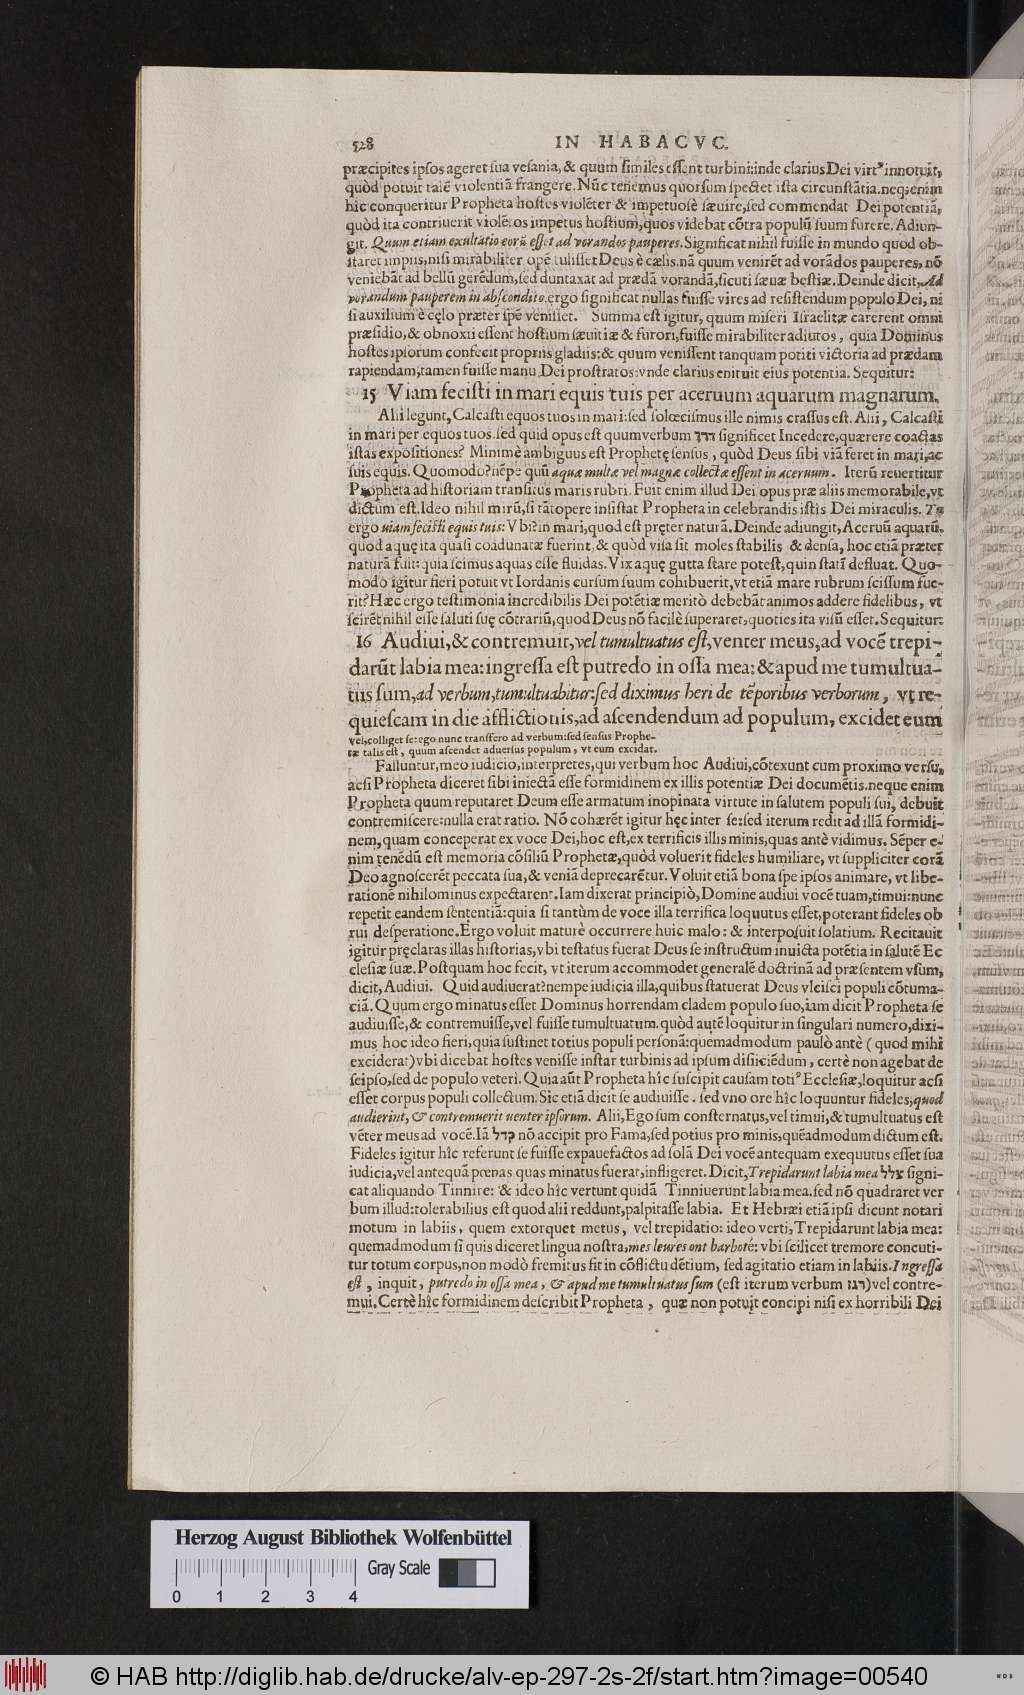 528 IN HABACVC.
præcipites ipsos ageret sua vesania, & quum similes essent turbini: inde clarius Dei virtꝰ innotuit,
quòd potuit talẽ violentiã frangere. Nũc tenemus quorsum spectet ista circunstãtia. neq; enim
hîc conqueritur Propheta hostes violẽter & impetuosè sæuire, sed commendat Dei potentiã,
quòd ita contriuerit violẽtos impetus hostium, quos videbat cõtra populũ suum furere. Adiun-
git, Quum etiam exultatio eorũ esset ad vorandos pauperes. Significat nihil fuisse in mundo quod ob-
staret impiis, nisi mirabiliter opẽ tulisset Deus è cælis. nã quum venirẽt ad vorãdos pauperes, nõ
veniebãt ad bellũ gerẽdum, sed duntaxat ad prædã vorandã, sicuti sæuæ bestiæ. Deinde dicit, Ad
vorandum pauperem in abscondito. ergo significat nullas fuisse vires ad resistendum populo Dei, ni
si auxilium è cęlo præter spẽ venisset. Summa est igitur, quum miseri Israelitæ carerent omni
præsidio, & obnoxii essent hostium sæuitiæ & furori, fuisse mirabiliter adiutos, quia Dominus
hostes ipsorum confecit propriis gladiis: & quum venissent tanquam potiti victoria ad prædam
rapiendam, tamen fuisse manu Dei prostratos: vnde clarius enituit eius potentia. Sequitur:
15 Viam fecisti in mari equis tuis per aceruum aquarum magnarum.
Alii legunt, Calcasti equos tuos in mari: sed solœcismus ille nimis crassus est. Alii, Calcasti
in mari per equos tuos. sed quid opus est quum verbum דרך significet Incedere, quærere coactas
istas expositiones? Minimè ambiguus est Prophetę sensus, quòd Deus sibi viã feret in mari, ac
suis equis. Quomodo? nẽpe quũ aquæ multæ vel magnæ collectæ essent in aceruum. Iterũ reuertitur
Propheta ad historiam transitus maris rubri. Fuit enim illud Dei opus præ aliis memorabile, vt
dictum est. Ideo nihil mirũ, si tãtopere insistat Propheta in celebrandis istis Dei miraculis. Tu
ergo uiam fecisti equis tuis: Vbi? in mari, quod est pręter naturã. Deinde adiungit, Aceruũ aquarũ.
quod aquę ita quasi coadunatæ fuerint, & quòd visa sit moles stabilis & densa, hoc etiã præter
naturã fuit: quia scimus aquas esse fluidas. Vix aquę gutta stare potest, quin statĩ defluat. Quo-
modo igitur fieri potuit vt Iordanis cursum suum cohibuerit, vt etiã mare rubrum scissum fue-
rit? Hæc ergo testimonia incredibilis Dei potẽtiæ meritò debebãt animos addere fidelibus, vt
scirẽt nihil esse saluti suę cõtrariũ, quod Deus nõ facilè superaret, quoties ita visũ esset. Sequitur:
16 Audiui, & contremuit, vel tumultuatus est, venter meus, ad vocẽ trepi-
darũt labia mea: ingressa est putredo in ossa mea: & apud me tumultua-
tus sum, ad verbum, tumultuabitur: sed diximus heri de tẽporibus verborum, vt re-
quiescam in die afflictionis, ad ascendendum ad populum, excidet eum
vel, colliget se: ego nunc transfero ad verbum: sed sensus Prophe-
tæ talis est, quum ascendet aduersus populum, vt eum excidat.
Falluntur, meo iudicio, interpretes, qui verbum hoc Audiui, cõtexunt cum proximo versu,
acsi Propheta diceret sibi iniectã esse formidinem ex illis potentiæ Dei documẽtis. neque enim
Propheta quum reputaret Deum esse armatum inopinata virtute in salutem populi sui, debuit
contremiscere: nulla erat ratio. Nõ cohærẽt igitur hęc inter se: sed iterum redit ad illã formidi-
nem, quam conceperat ex voce Dei, hoc est, ex terrificis illis minis, quas antè vidimus. Sẽper e-
nim tenẽdũ est memoria cõsiliũ Prophetæ, quòd voluerit fideles humiliare, vt suppliciter corã
Deo agnoscerẽt peccata sua, & veniã deprecarẽtur. Voluit etiã bona spe ipsos animare, vt libe-
rationẽ nihilominus expectarent. Iam dixerat principiò, Domine audiui vocẽ tuam, timui: nunc
repetit eandem sententiã: quia si tantùm de voce illa terrifica loquutus esset, poterant fideles ob
rui desperatione. Ergo voluit maturè occurrere huic malo: & interposuit solatium. Recitauit
igitur pręclaras illas historias, vbi testatus fuerat Deus se instructum inuicta potẽtia in salutẽ Ec
clesiæ suæ. Postquam hoc fecit, vt iterum accommodet generalẽ doctrinã ad præsentem vsum,
dicit, Audiui. Quid audiuerat? nempe iudicia illa, quibus statuerat Deus vlcisci populi cõtuma-
ciã. Quum ergo minatus esset Dominus horrendam cladem populo suo, iam dicit Propheta se
audiuisse, & contremuisse, vel fuisse tumultuatum. quòd autẽ loquitur in singulari numero, dixi-
mus hoc ideo fieri, quia sustinet totius populi personã: quemadmodum paulò antè (quod mihi
exciderat) vbi dicebat hostes venisse instar turbinis ad ipsum disiiciẽdum, certè non agebat de
seipso, sed de populo veteri. Quia aũt Propheta hîc suscipit causam totiꝰ Ecclesiæ, loquitur acsi
esset corpus populi collectum. Sic etiã dicit se audiuisse. sed vno ore hîc loquuntur fideles, quod
audierint, & contremuerit uenter ipsorum. Alii, Ego sum consternatus, vel timui, & tumultuatus est
vẽter meus ad vocẽ. Iã קול nõ accipit pro Fama, sed potius pro minis, quẽadmodum dictum est.
Fideles igitur hîc referunt se fuisse expauefactos ad solã Dei vocẽ antequam exequutus esset sua
iudicia, vel antequã pœnas quas minatus fuerat, infligeret. Dicit, Trepidarunt labia mea צלל signi-
cat aliquando Tinnire: & ideo hîc vertunt quidã Tinniuerunt labia mea. sed nõ quadraret ver
bum illud: tolerabilius est quod alii reddunt, palpitasse labia. Et Hebræi etiã ipsi dicunt notari
motum in labiis, quem extorquet metus, vel trepidatio: ideo verti, Trepidarunt labia mea:
quemadmodum si quis diceret lingua nostra, mes leures ont barboté: vbi scilicet tremore concuti-
tur totum corpus, non modò fremitus fit in cõflictu dẽtium, sed agitatio etiam in labiis. Ingressa
est, inquit, putredo in ossa mea, & apud me tumultuatus sum (est iterum verbum רגז) vel contre-
mui. Certè hîc formidinem describit Propheta, quæ non potuit concipi nisi ex horribili Dei
Herzog August Bibliothek Wolfenbüttel
Gray Scale
0 1 2 3 4
© HAB http://diglib.hab.de/drucke/alv-ep-297-2s-2f/start.htm?image=00540
WDB